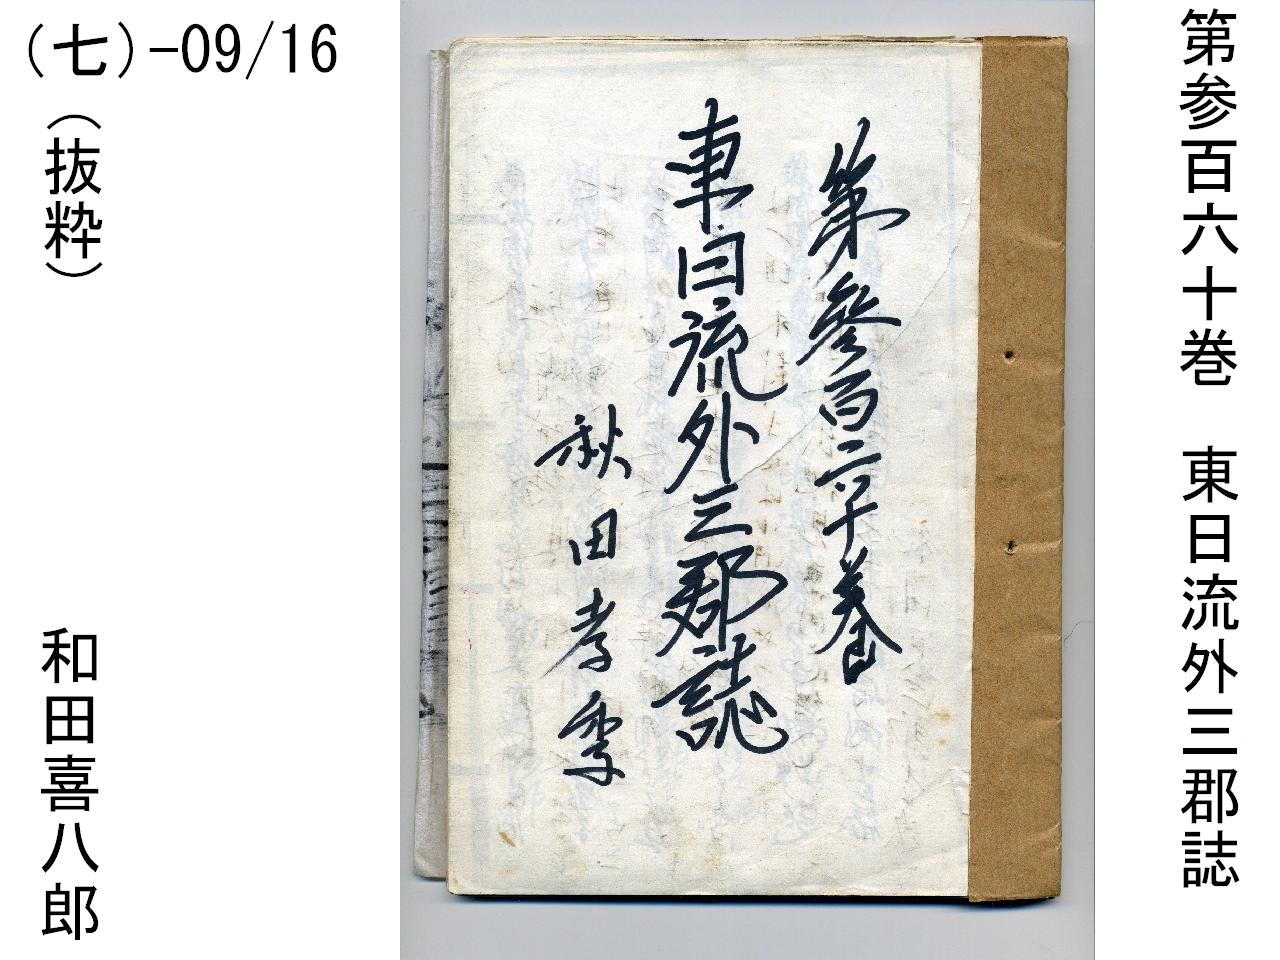 第参百六十巻　東日流外三郡誌
第參百六十巻
東日流外三郡誌
秋田孝季
(七)-09/16
（抜粋）
和田喜八郎